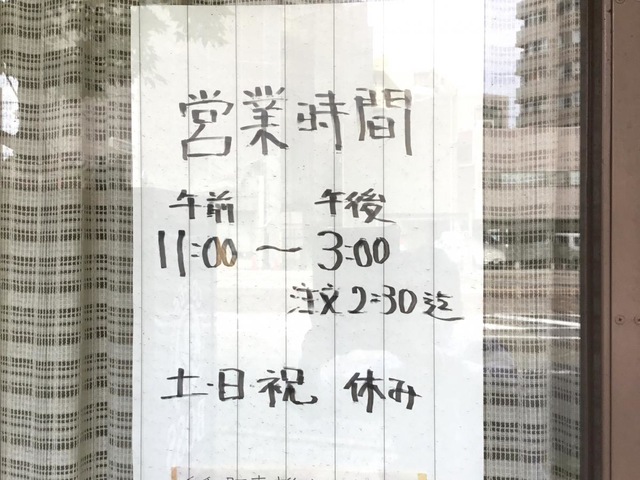 営業時間
午前 午後
11:00 〜 3:00
注文 2:30 迄
土・日・祝 休み